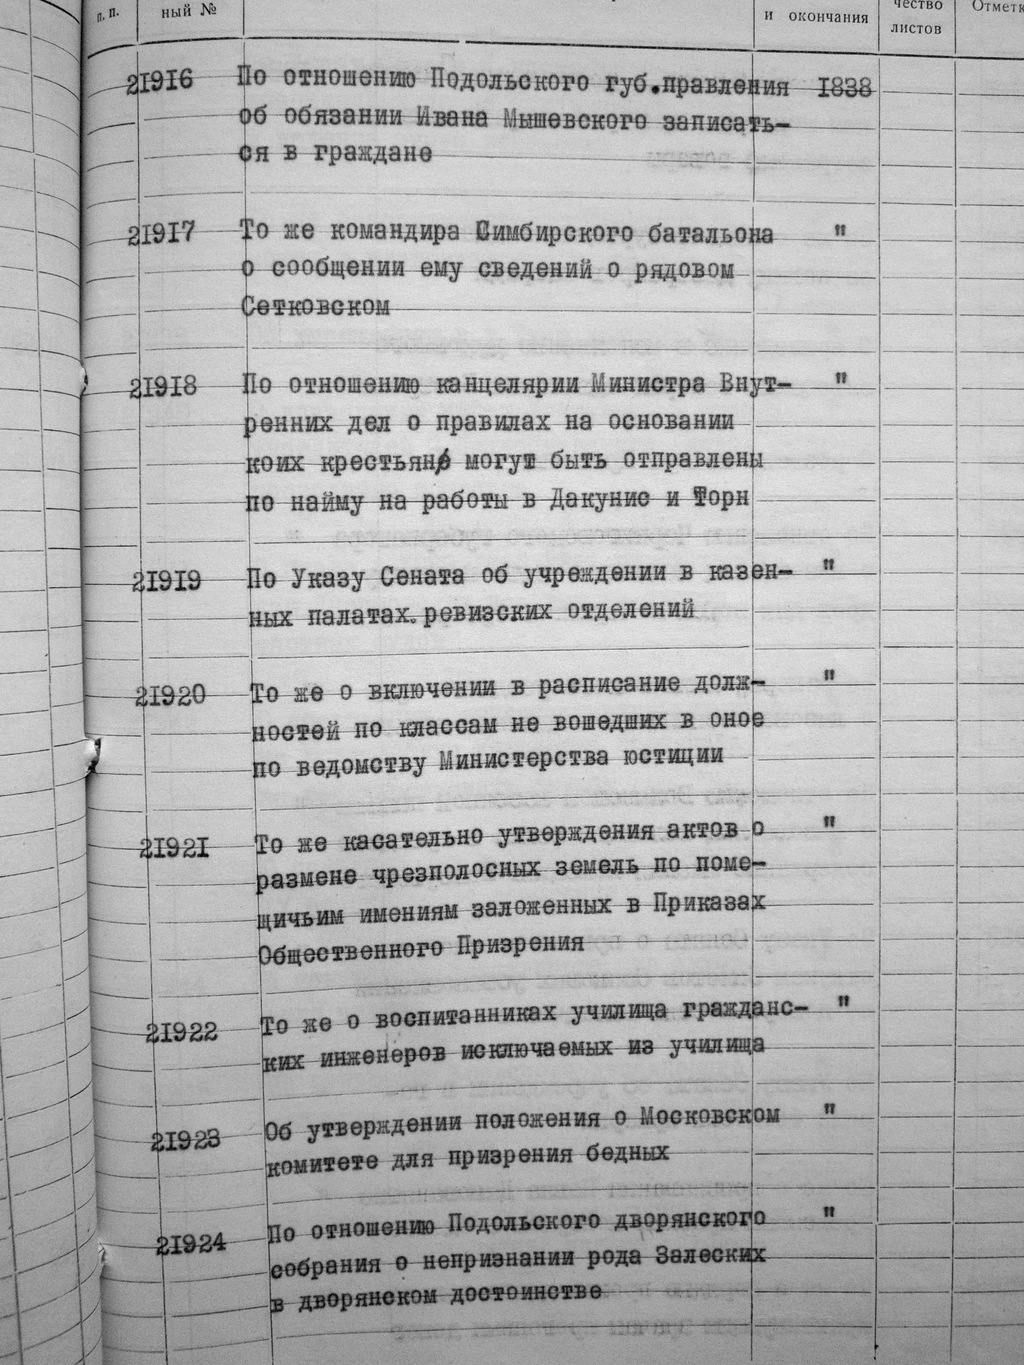 п.п. ный № и окончания чество листов Отметк
21916 По отношению Подольского губ.правления 1838
об обязании Ивана Мышевского записать-
ся в граждане
21917 То же командира Симбирского батальона "
о сообщении ему сведений о рядовом
Сетковском
21918 По отношению канцелярии Министра Внут- "
ренних дел о правилах на основании
коих крестьяне могут быть отправлены
по найму на работы в Дакунис и Торн
21919 По Указу Сената об учреждении в казен- "
ных палатах ревизских отделений
21920 То же о включении в расписание долж- "
ностей по классам не вошедших в оное
по ведомству Министерства юстиции
21921 То же касательно утверждения актов о "
размене чрезполосных земель по поме-
щичьим имениям заложенных в Приказах
Общественного Призрения
21922 То же о воспитанниках училища гражданс- "
ких инженеров исключаемых из училища
21923 Об утверждении положения о Московском "
комитете для призрения бедных
21924 По отношению Подольского дворянского "
собрания о непризнании рода Залеских
в дворянском достоинстве